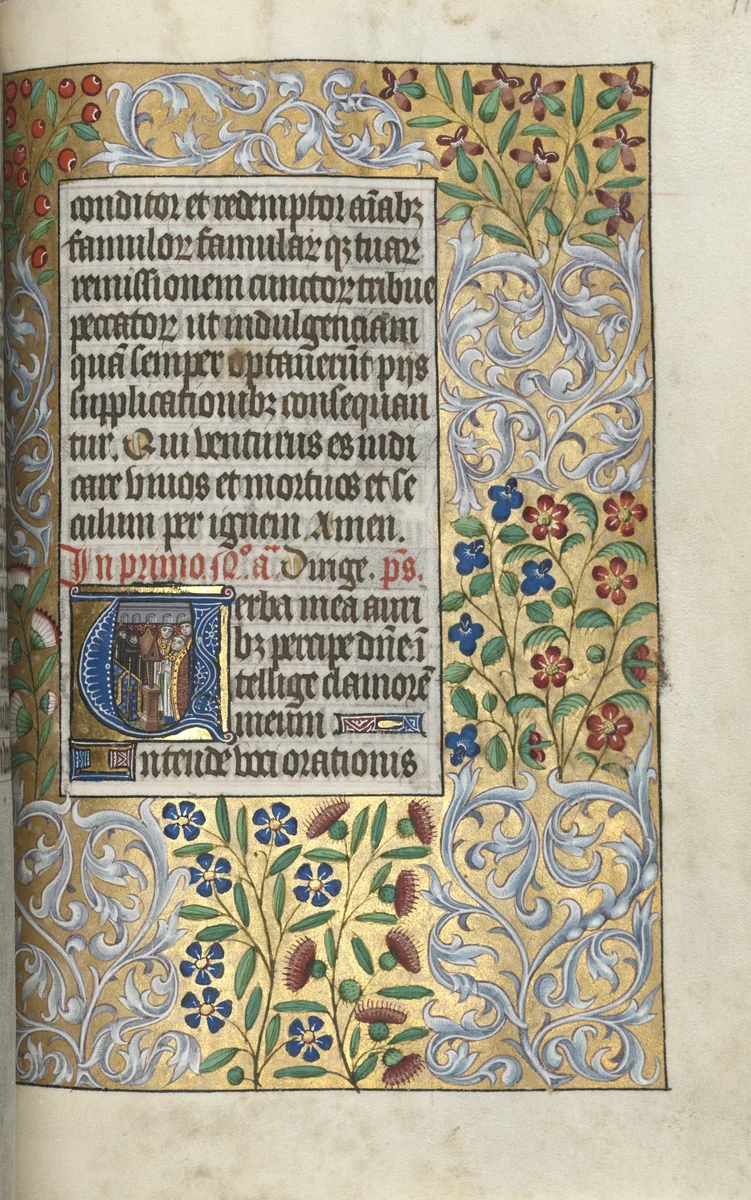 conditor et redemptor aīabꝫ
famuloꝝ famulaꝝ qꝫ tuaꝝ
remissionem cunctoꝝ tribue
peccatoꝝ ut indulgenciam
quā semper optauerūt pijs
supplicationibꝫ consequan
tur. Qui venturus es iudi
care viuos et mortuos et se
culum per ignem. Amen.
In primo. n̊. aᷓ. Dirige. p̄s.
Uerba mea auri
bꝫ percipe dn̄e ī
tellige clamorē
meum
Intende voci orationis